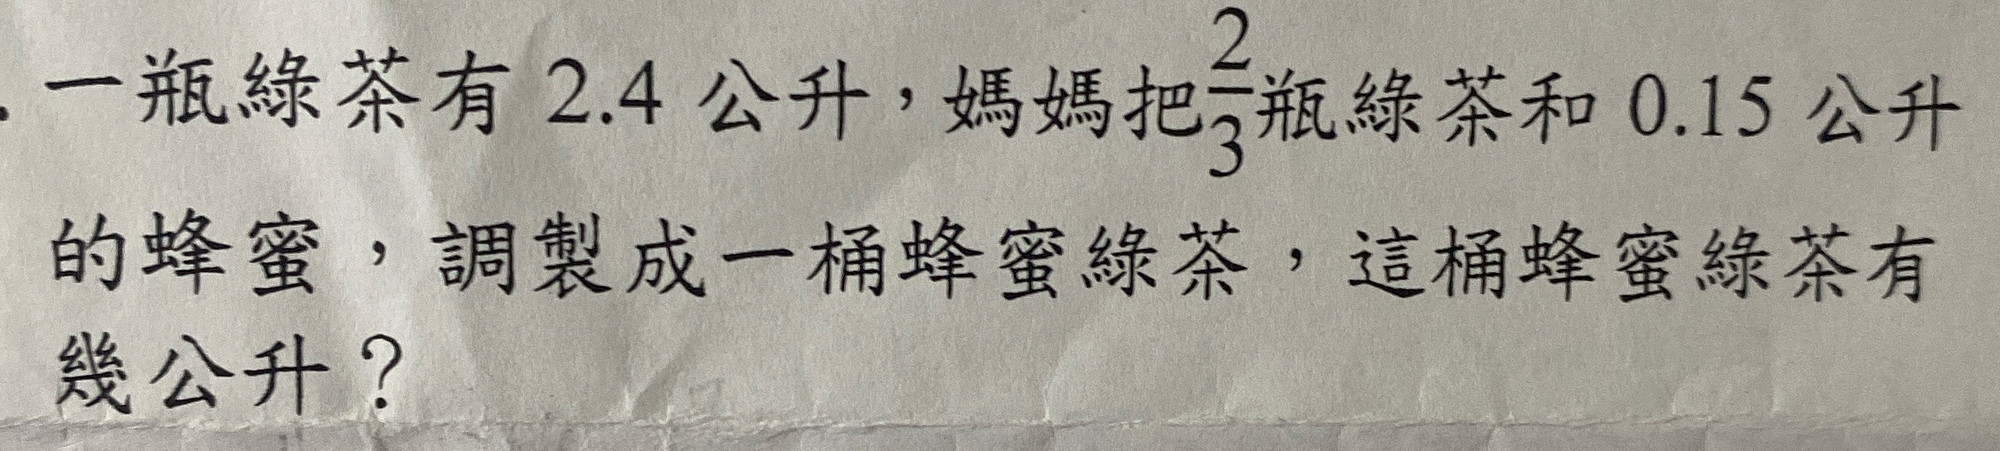 . 一瓶綠茶有 2.4 公升，媽媽把2/3瓶綠茶和 0.15 公升
的蜂蜜，調製成一桶蜂蜜綠茶，這桶蜂蜜綠茶有
幾公升？